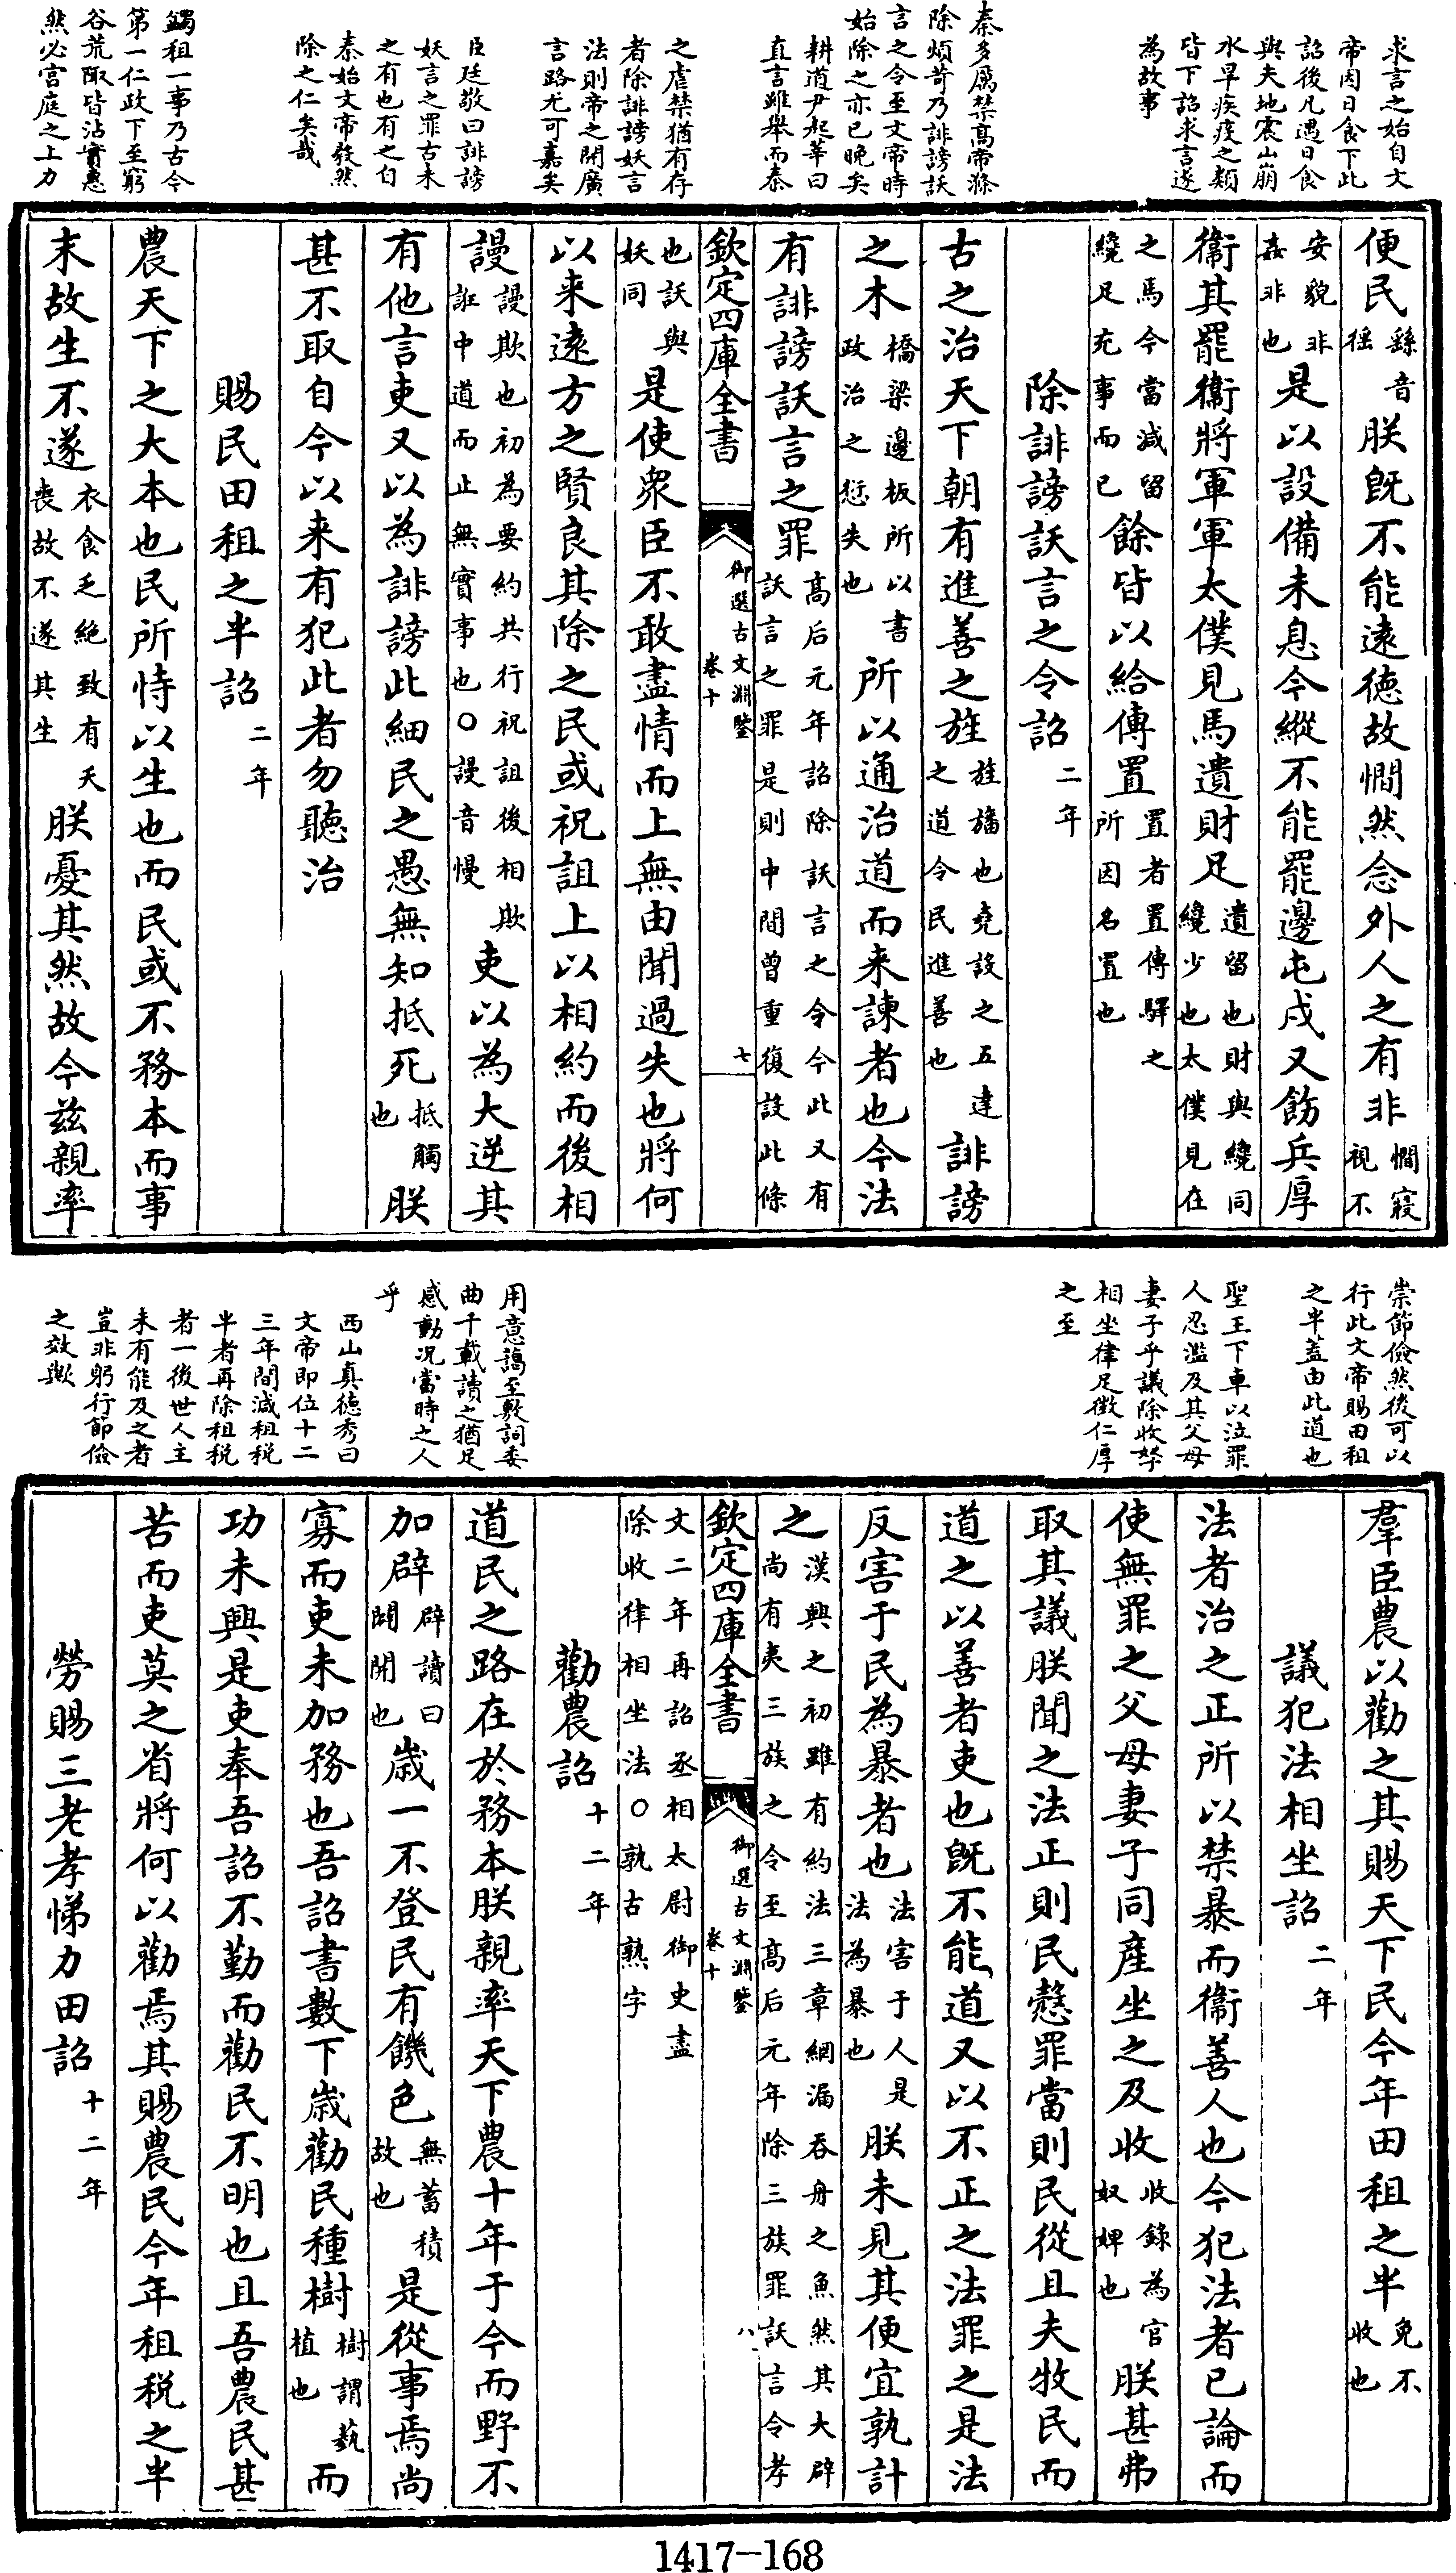 求言之始自文
帝因日食下此
詔後凡遇日食
與夫地震山崩
水旱疾疫之類
皆下詔求言遂
為故事
秦多厲禁高帝滌
除煩苛乃誹謗訞
言之令至文帝時
始除之亦已晚矣
耕道尹起莘曰
直言雖舉而秦
之虐禁猶有存
者除誹謗妖言
法則帝之開廣
言路尤可嘉矣
臣廷敬曰誹謗
妖言之罪古未
之有也有之自
秦始文帝發然
除之仁矣哉
蠲租一事乃古今
第一仁政下至窮
谷荒陬皆沾實惠
然必宫庭之上力
便民繇音徭朕既不能遠德故憪然念外人之有非憪寢視不
安貌非姦非也是以設備未息今縱不能罷邊屯戍又飭兵厚
衞其罷衞將軍軍太僕見馬遺財足遺留也財與纔同纔少也太僕見在
之馬今當減留纔足充事而已餘皆以給傳置置者置傳驛之所因名置也
除誹謗訞言之令詔二年
古之治天下朝有進善之旌旌旛也堯設之五達之道令民進善也誹謗
之木橋梁邊板所以書政治之愆失也所以通治道而来諫者也今法
有誹謗訞言之罪高后元年詔除訞言之令今此又有訞言之罪是則中間曾重復設此條
欽定四庫全書
御選古文淵鑒
卷十
七
也訞與妖同是使衆臣不敢盡情而上無由聞過失也將何
以来遠方之賢良其除之民或祝詛上以相約而後相
謾謾欺也初為要約共行祝詛後相欺誑中道而止無實事也○謾音慢吏以為大逆其
有他言吏又以為誹謗此細民之愚無知抵死抵觸也朕
甚不取自今以来有犯此者勿聽治
賜民田租之半詔二年
農天下之大本也民所恃以生也而民或不務本而事
末故生不遂衣食乏絶致有夭喪故不遂其生朕憂其然故今兹親率
崇節儉然後可以
行此文帝賜田租
之半蓋由此道也
聖王下車以泣罪
人忍濫及其父母
妻子乎議除收帑
相坐律足徵仁厚
之至
用意藹至敷詞委
曲千載讀之猶足
感動况當時之人
乎
西山真德秀曰
文帝即位十二
三年間減租税
半者再除租税
者一後世人主
未有能及之者
豈非躬行節儉
之效歟
羣臣農以勸之其賜天下民今年田租之半免不收也
議犯法相坐詔二年
法者治之正所以禁暴而衞善人也今犯法者已論而
使無罪之父母妻子同産坐之及收收錄為官奴婢也朕甚弗
取其議朕聞之法正則民慤罪當則民從且夫牧民而
道之以善者吏也既不能道又以不正之法罪之是法
反害于民為暴者也法害于人是法為暴也朕未見其便宜孰計
之漢興之初雖有約法三章網漏吞舟之魚然其大辟尚有夷三族之令至高后元年除三族罪訞言令孝
欽定四庫全書
御選古文淵鑒
卷十
八
文二年再詔丞相太尉御史盡除收律相坐法○孰古熟字
勸農詔十二年
道民之路在於務本朕親率天下農十年于今而野不
加辟辟讀曰闢開也歲一不登民有饑色無蓄積故也是從事焉尚
寡而吏未加務也吾詔書數下歲勸民種樹樹謂蓺植也而
功未興是吏奉吾詔不勤而勸民不明也且吾農民甚
苦而吏莫之省將何以勸焉其賜農民今年租税之半
勞賜三老孝悌力田詔十二年
1417-168